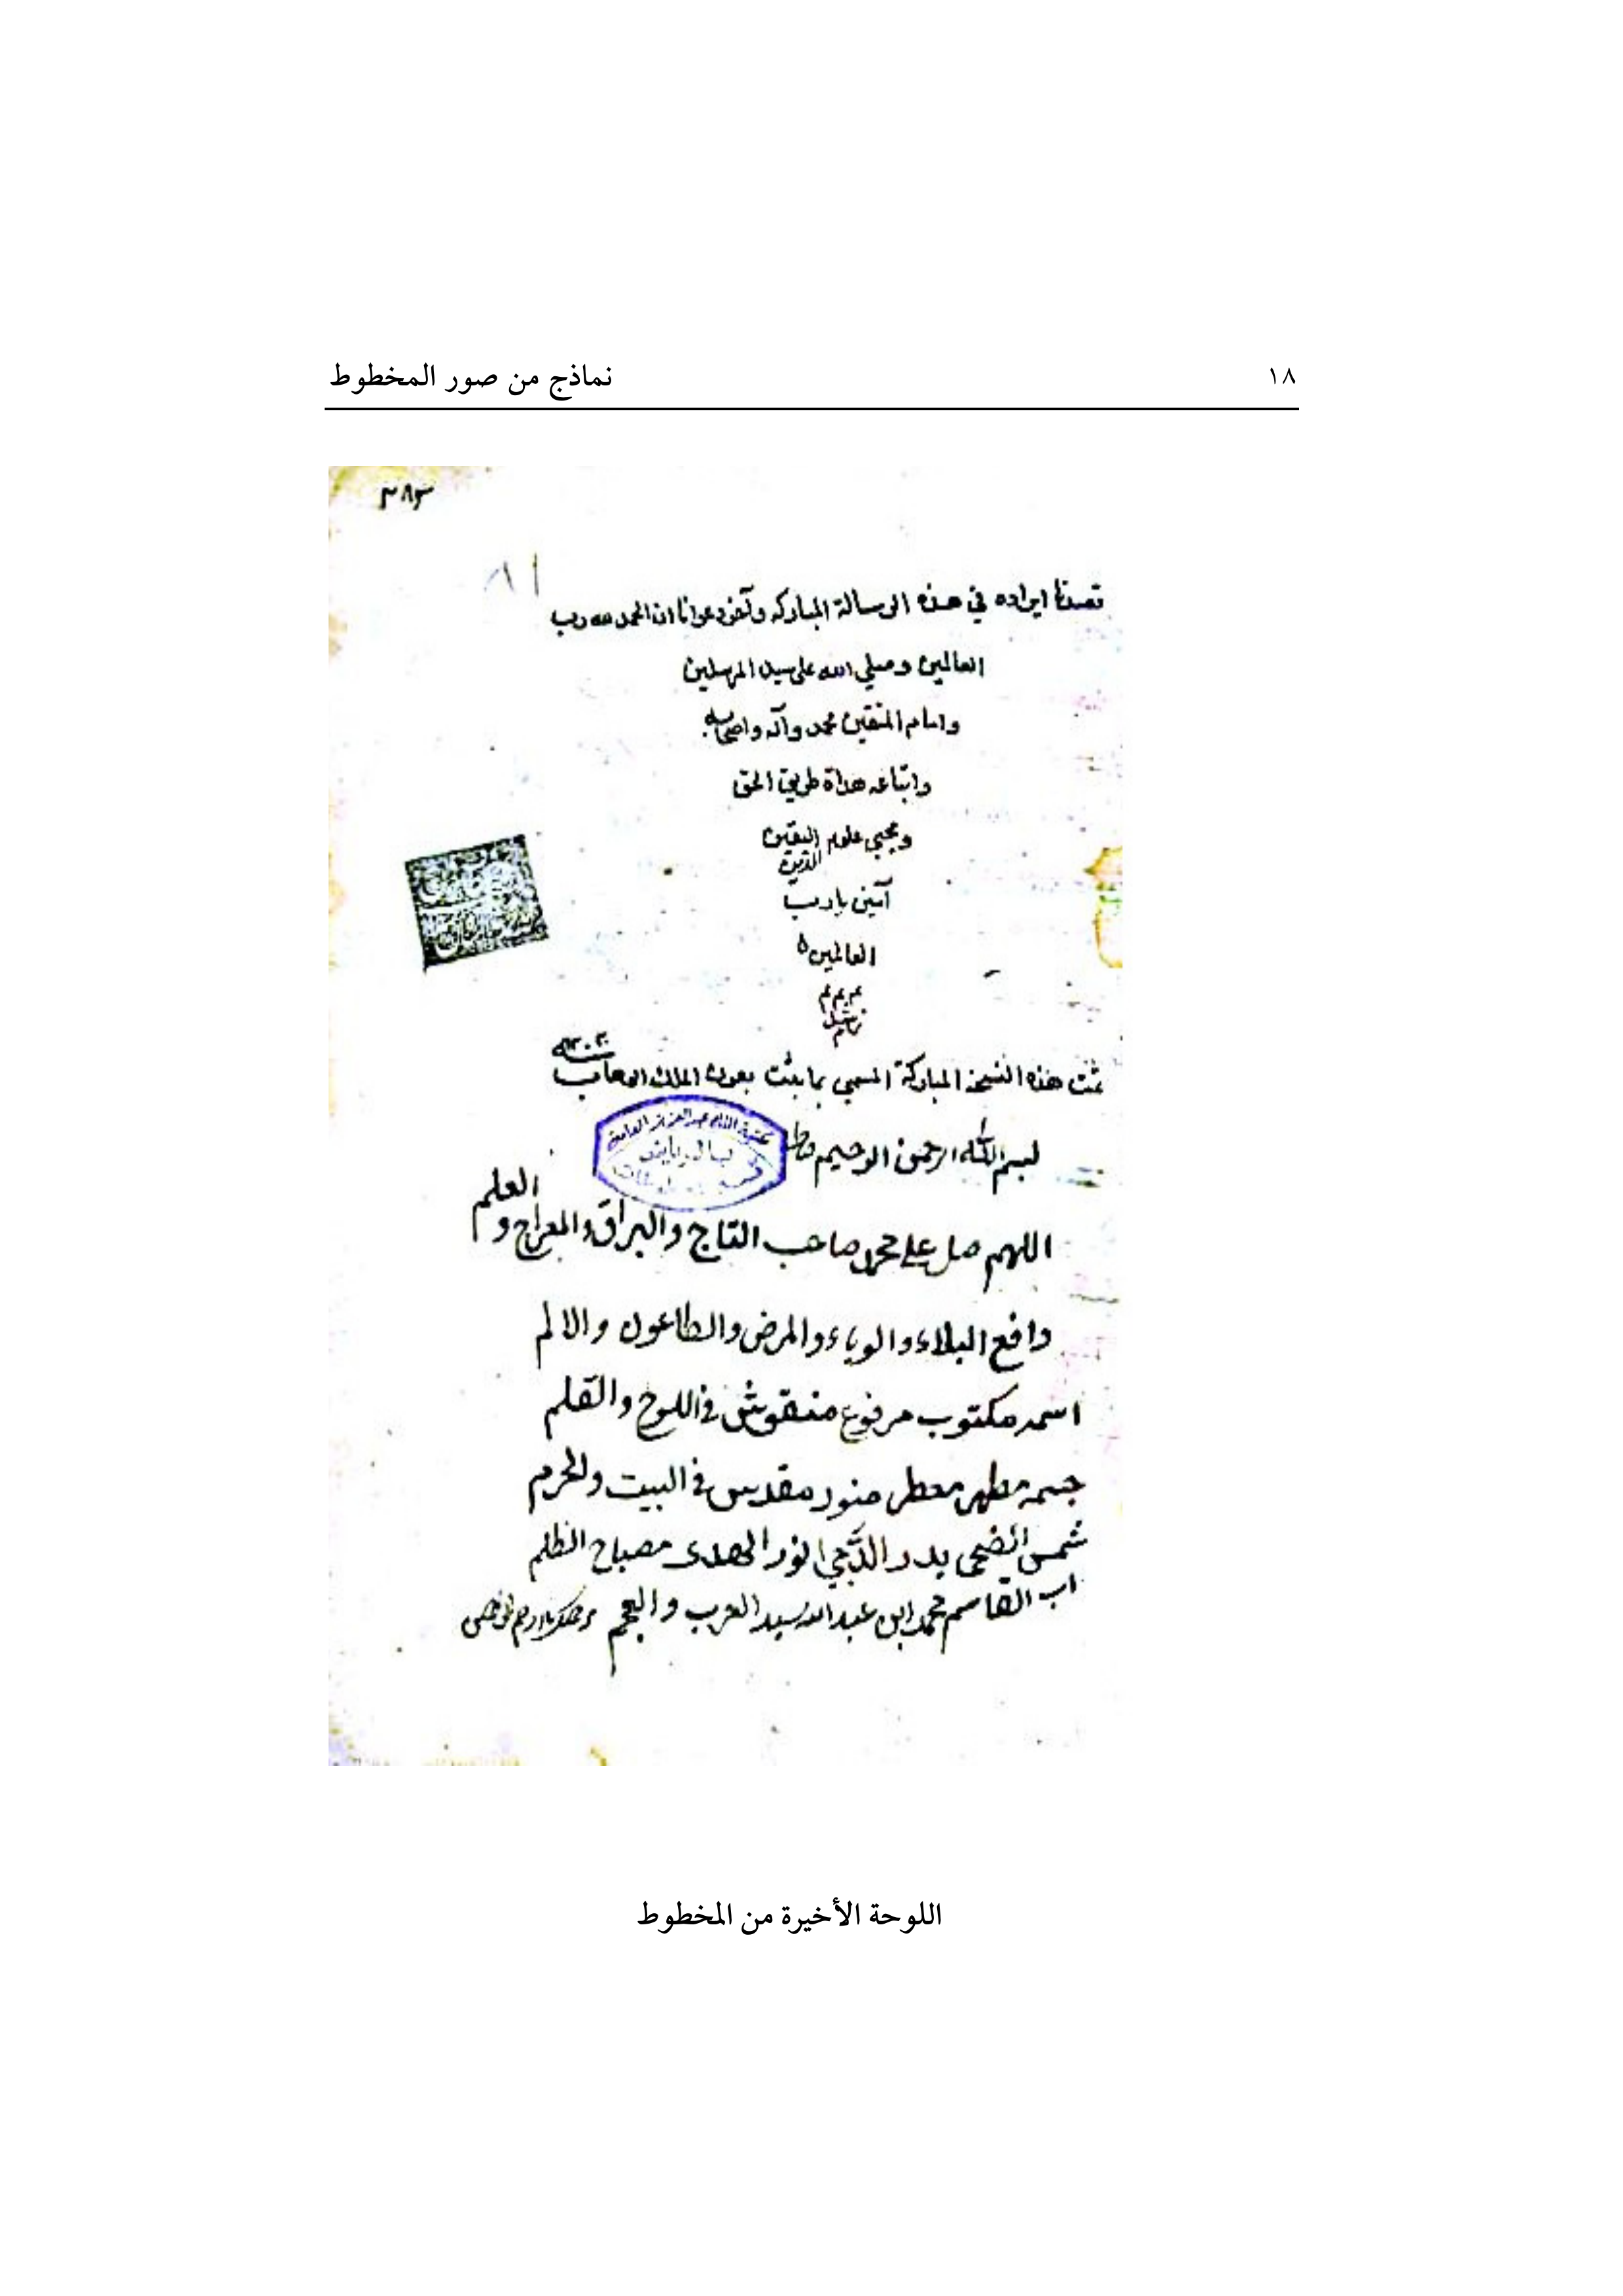 ١٨
نماذج من صور المخطوط
٣٨٣
٨١
قصدنا ايراده في هذه الرسالة المباركه وآخر دعوانا ان الحمد لله رب
العالمين وصلي الله على سيد المرسلين
وامام المتقين محمد وآله واصحابه
واتباعه هداة طريق الحق
ومحبي علوم اليقين
آمين يا رب
العالمين
تمت هذه النسخة المباركة المسمي بما بثت بعون الملك الوهاب
بسم الله الرحمن الرحيم
العلم
اللهم صل على محمد صاحب التاج والبراق والمعراج و
دافع البلاء والوباء والمرض والطاعون والالم
اسمه مكتوب مرفوع منقوش في اللوح والقلم
جسمه مطهر معطر منور مقدس في البيت والحرم
شمس الضحى بدر الدجي نور الهدى مصباح الظلم
اب القاسم محمد ابن عبد الله سيد العرب والعجم
اللوحة الأخيرة من المخطوط